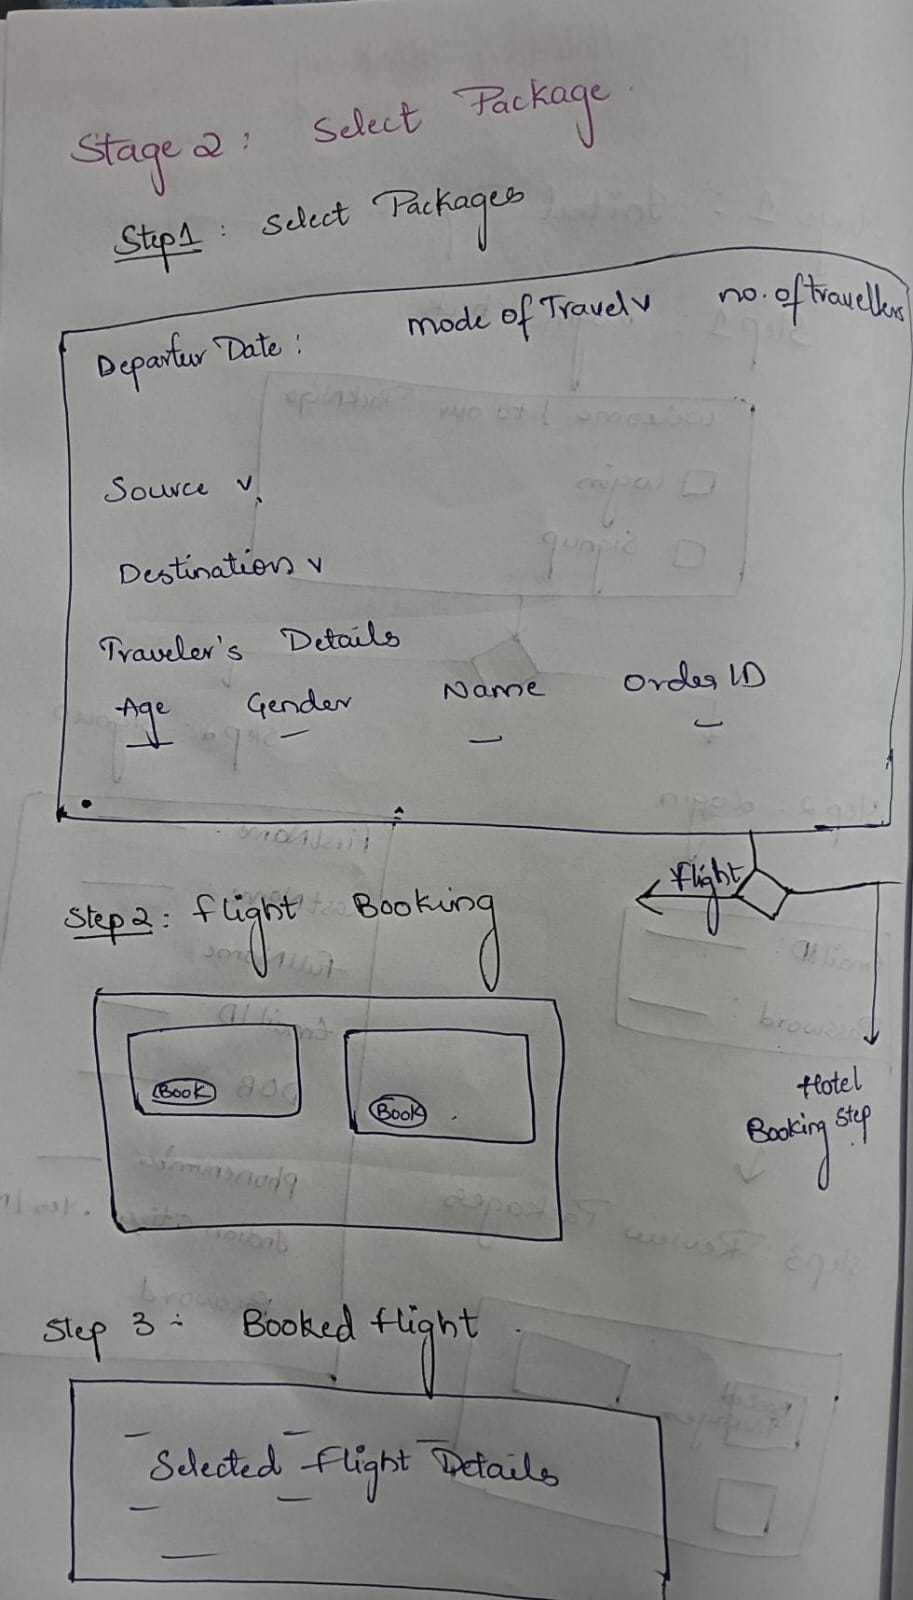 Stage 2 : Select Package
Step1 : Select Packages
Departur Date : mode of Travel v no. of travellers
Source v
Destination v
Traveler's Details
Age Gender Name Order ID
flight
Step 2 : flight Booking
Book Book
Hotel
Booking Step
Step 3 : Booked flight
Selected flight Details